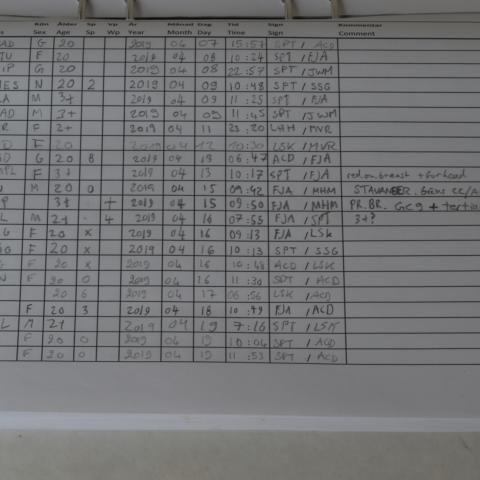 Kön Ålder Sp Vp År Månad Dag Tid Sign Kommentar
Sex Age Sp Wp Year Month Day Time Sign Comment
G 20 2019 04 07 15:57 SPT / ACD
F 20 2019 04 08 10:24 SPT / FJA
G 20 2019 04 08 22:57 SPT / JWM
N 20 2 2019 04 09 10:48 SPT / SSG
M 3+ 2019 04 09 11:25 SPT / FJA
M 3+ 2019 04 09 11:45 SPT / JWM
F 2+ 2019 04 11 LHH / MVR
F 20 2019 04 12 10:30 LSK / MVR
G 20 8 2019 04 13 06:47 ACD / FJA
F 3+ 2019 04 13 10:17 SPT / FJA red on breast + forhead
M 20 0 2019 04 15 09:42 FJA / MHM
3+ + 2019 04 15 09:50 FJA / MHM PR. BR.
L M 2+ 4 2019 04 16 07:55 FJA / SPT 3+?
G F 20 x 2019 04 16 09:13 FJA / LSK
F 20 x 2019 04 16 10:13 SPT / SSG
F 20 x 2019 04 16 10:48 ACD / LSK
N F 20 0 2019 04 16 11:30 SPT / ACD
20 6 2019 04 17 06:56 LSK / ACD
F 20 3 2019 04 18 10:49 FJA / ACD
L M 2+ 2019 04 19 7:16 SPT / LSK
F 20 0 2019 04 19 10:04 SPT / ACD
F 20 0 2019 04 19 11:53 SPT / ACD